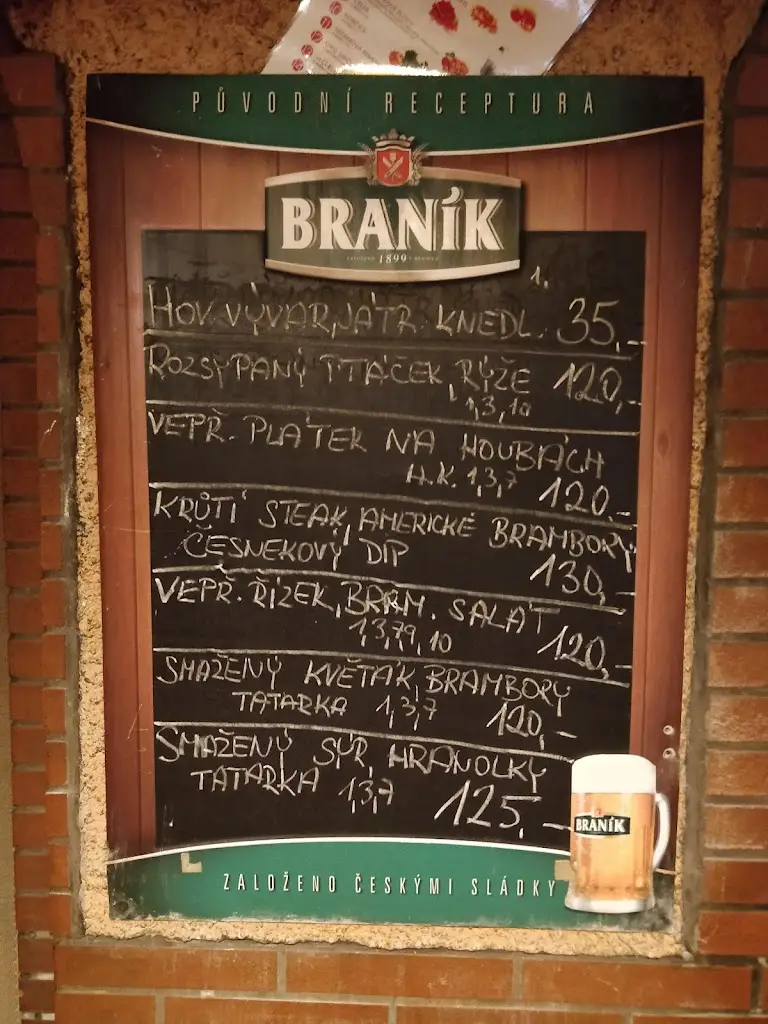 PŮVODNÍ RECEPTURA
BRANÍK
1899
1.
HOV. VÝVAR, JÁTR. KNEDL. 35,-
ROZSYPANÝ PTÁČEK, RÝŽE 120,-
1,3,10
VEPŘ. PLÁTEK NA HOUBÁCH
H.K. 1,3,7 120.-
KRŮTÍ STEAK, AMERICKÉ BRAMBORY
ČESNEKOVÝ DIP 130,-
VEPŘ. ŘÍZEK, BRAM. SALÁT
1,3,7,9,10 120,-
SMAŽENÝ KVĚTÁK, BRAMBORY
TATARKA 1,3,7 120,-
SMAŽENÝ SÝR, HRANOLKY
TATARKA 1,3,7 125,-
BRANÍK
ZALOŽENO ČESKÝMI SLÁDKY